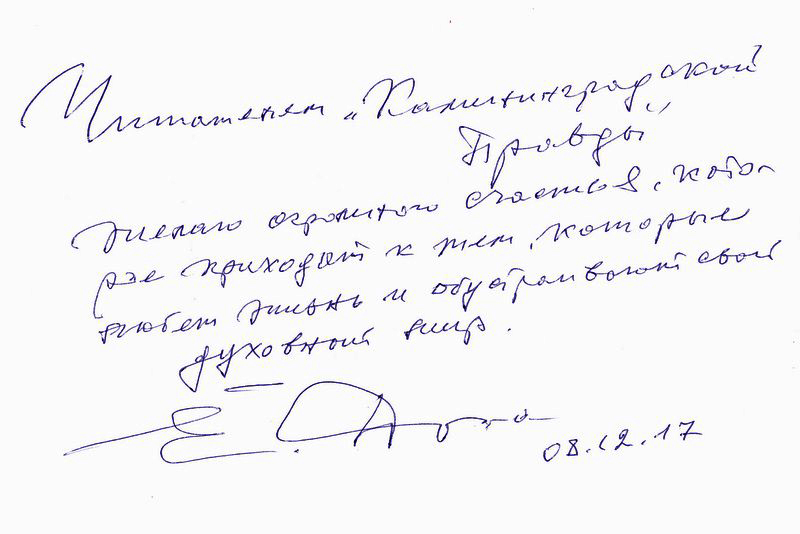 Читателям „Калининградской
Правды"
желаю огромного счастья, кото-
рое приходит к тем, которые
любят жизнь и обустраивают свой
духовный мир.
08.12.17